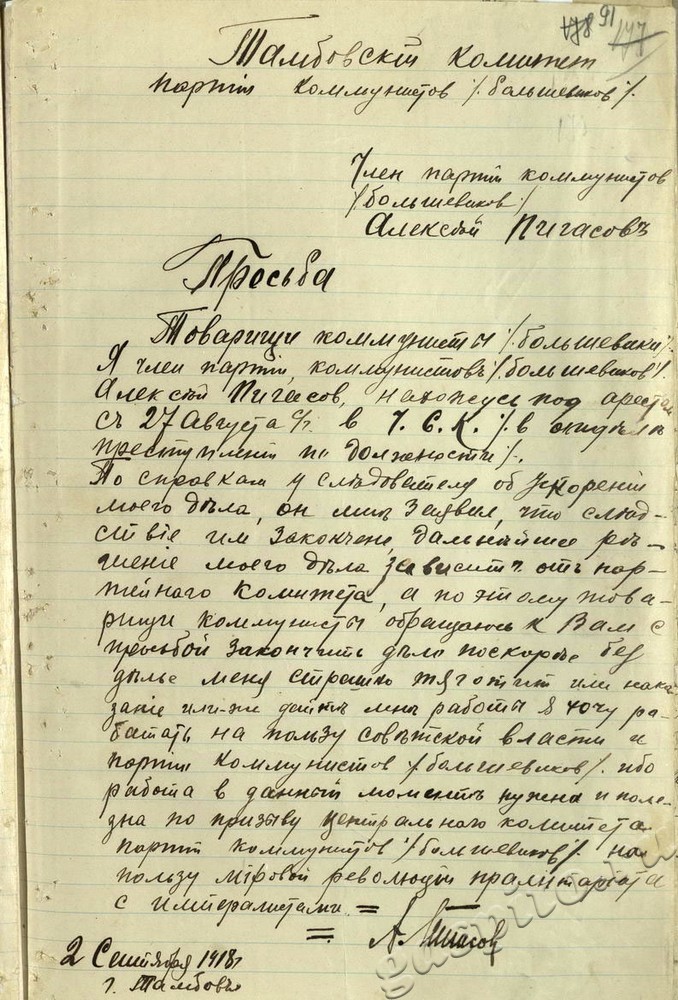 178 91 177
Тамбовскій комитет
партіи коммунистов /большевиков/.
Член партіи коммунистов
/большевиков/
Алексѣй Пигасовъ
Просьба
Товарищи коммунисты /большевики/.
Я член партіи коммунистовъ /большевиков/.
Алексѣй Пигасов, нахожусь под арестом
съ 27 Августа с/г. в Ч.С.К. /в
преступленіи по должности/.
По справкам у слѣдователя об ускореніи
моего дѣла, он мнѣ заявил, что слѣд-
ствіе им закончено, дальнѣйшее рѣ-
шеніе моего дѣла зависитъ отъ пар-
тейнаго комитета, а поэтому това-
рищи коммунисты обращаюсь к Вам с
просьбой закончить дѣло поскорѣе без
дѣлье меня страшно тяготит или нака
заніе или-же дайте мнѣ работы я хочу ра-
ботать на пользу совѣтской власти и
партіи коммунистов /большевиков/. ибо
работа в данный моментъ нужна и поле-
зна по призыву центральнаго комитета
партіи коммунистов /большевиков/. на
пользу міровой революціи пралитаріата
с импералистами =
= А. Пигасов
2 Сентября 1918г
г. Тамбовъ